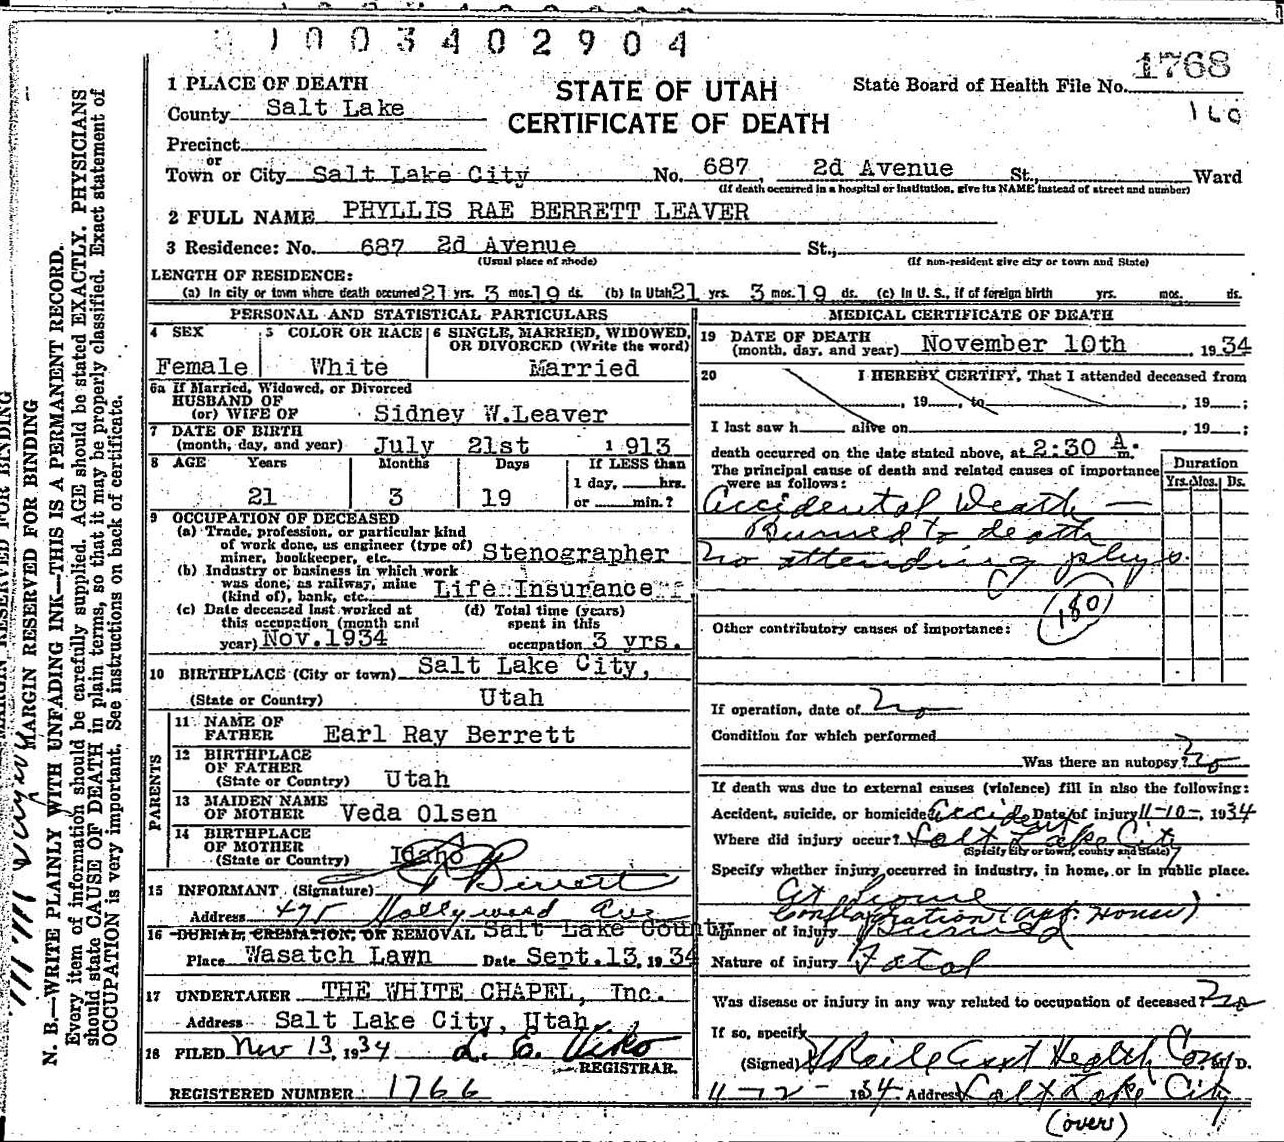 1003402904
1768
160
STATE OF UTAH
CERTIFICATE OF DEATH
State Board of Health File No.
1 PLACE OF DEATH
County Salt Lake
Precinct
or
Town or City Salt Lake City No. 687, 2d Avenue St., Ward
(If death occurred in a hospital or institution, give its NAME instead of street and number)
2 FULL NAME PHYLLIS RAE BERRETT LEAVER
3 Residence: No. 687 2d Avenue St.,
(Usual place of abode) (If non-resident give city or town and State)
LENGTH OF RESIDENCE:
(a) In city or town where death occurred 21 yrs. 3 mos. 19 ds. (b) In Utah 21 yrs. 3 mos. 19 ds. (c) In U. S., if of foreign birth yrs. mos. ds.
PERSONAL AND STATISTICAL PARTICULARS
4 SEX 5 COLOR OR RACE 6 SINGLE, MARRIED, WIDOWED,
OR DIVORCED (Write the word)
Female White Married
6a If Married, Widowed, or Divorced
HUSBAND OF
(or) WIFE OF Sidney W.Leaver
7 DATE OF BIRTH
(month, day, and year) July 21st 1913
8 AGE Years Months Days If LESS than
1 day, hrs.
21 3 19 or min.?
9 OCCUPATION OF DECEASED
(a) Trade, profession, or particular kind
of work done, as engineer (type of)
miner, bookkeeper, etc. Stenographer
(b) Industry or business in which work
was done, as railway, mine
(kind of), bank, etc. Life Insurance
(c) Date deceased last worked at (d) Total time (years)
this occupation (month and spent in this
year) Nov.1934 occupation 3 yrs.
10 BIRTHPLACE (City or town) Salt Lake City,
(State or Country) Utah
PARENTS
11 NAME OF
FATHER Earl Ray Berrett
12 BIRTHPLACE
OF FATHER
(State or Country) Utah
13 MAIDEN NAME
OF MOTHER Veda Olsen
14 BIRTHPLACE
OF MOTHER
(State or Country) Idaho
15 INFORMANT (Signature) Berrett
Address 495 Hollywood Ave
16 BURIAL, CREMATION, OR REMOVAL Salt Lake County
Place Wasatch Lawn Date Sept.13, 1934
17 UNDERTAKER THE WHITE CHAPEL, Inc.
Address Salt Lake City, Utah.
18 FILED Nov 13, 1934
REGISTRAR.
REGISTERED NUMBER 1766
MEDICAL CERTIFICATE OF DEATH
19 DATE OF DEATH
(month, day, and year) November 10th, 1934
20 I HEREBY CERTIFY, That I attended deceased from
, 19 , to , 19 ;
I last saw h alive on , 19 ;
death occurred on the date stated above, at 2:30 A. m.
The principal cause of death and related causes of importance
were as follows:
Duration
Yrs. Mos. Ds.
Accidental Death —
Burned to death
No attending phys.
180
Other contributory causes of importance:
If operation, date of no
Condition for which performed
Was there an autopsy? no
If death was due to external causes (violence) fill in also the following:
Accident, suicide, or homicide? Accident Date of injury 11-10-, 1934
Where did injury occur? Salt Lake City
(Specify city or town, county and State)
Specify whether injury occurred in industry, in home, or in public place.
At Home
Conflagration (Apt. House)
Manner of injury Burned
Nature of injury Fatal
Was disease or injury in any way related to occupation of deceased? no
If so, specify
(Signed) Asst Health Com M. D.
11-12- 1934. Address Salt Lake City
(over)
MARGIN RESERVED FOR BINDING
MARGIN RESERVED FOR BINDING
N. B.—WRITE PLAINLY WITH UNFADING INK—THIS IS A PERMANENT RECORD.
Every item of information should be carefully supplied. AGE should be stated EXACTLY. PHYSICIANS
should state CAUSE OF DEATH in plain terms, so that it may be properly classified. Exact statement of
OCCUPATION is very important. See instructions on back of certificate.